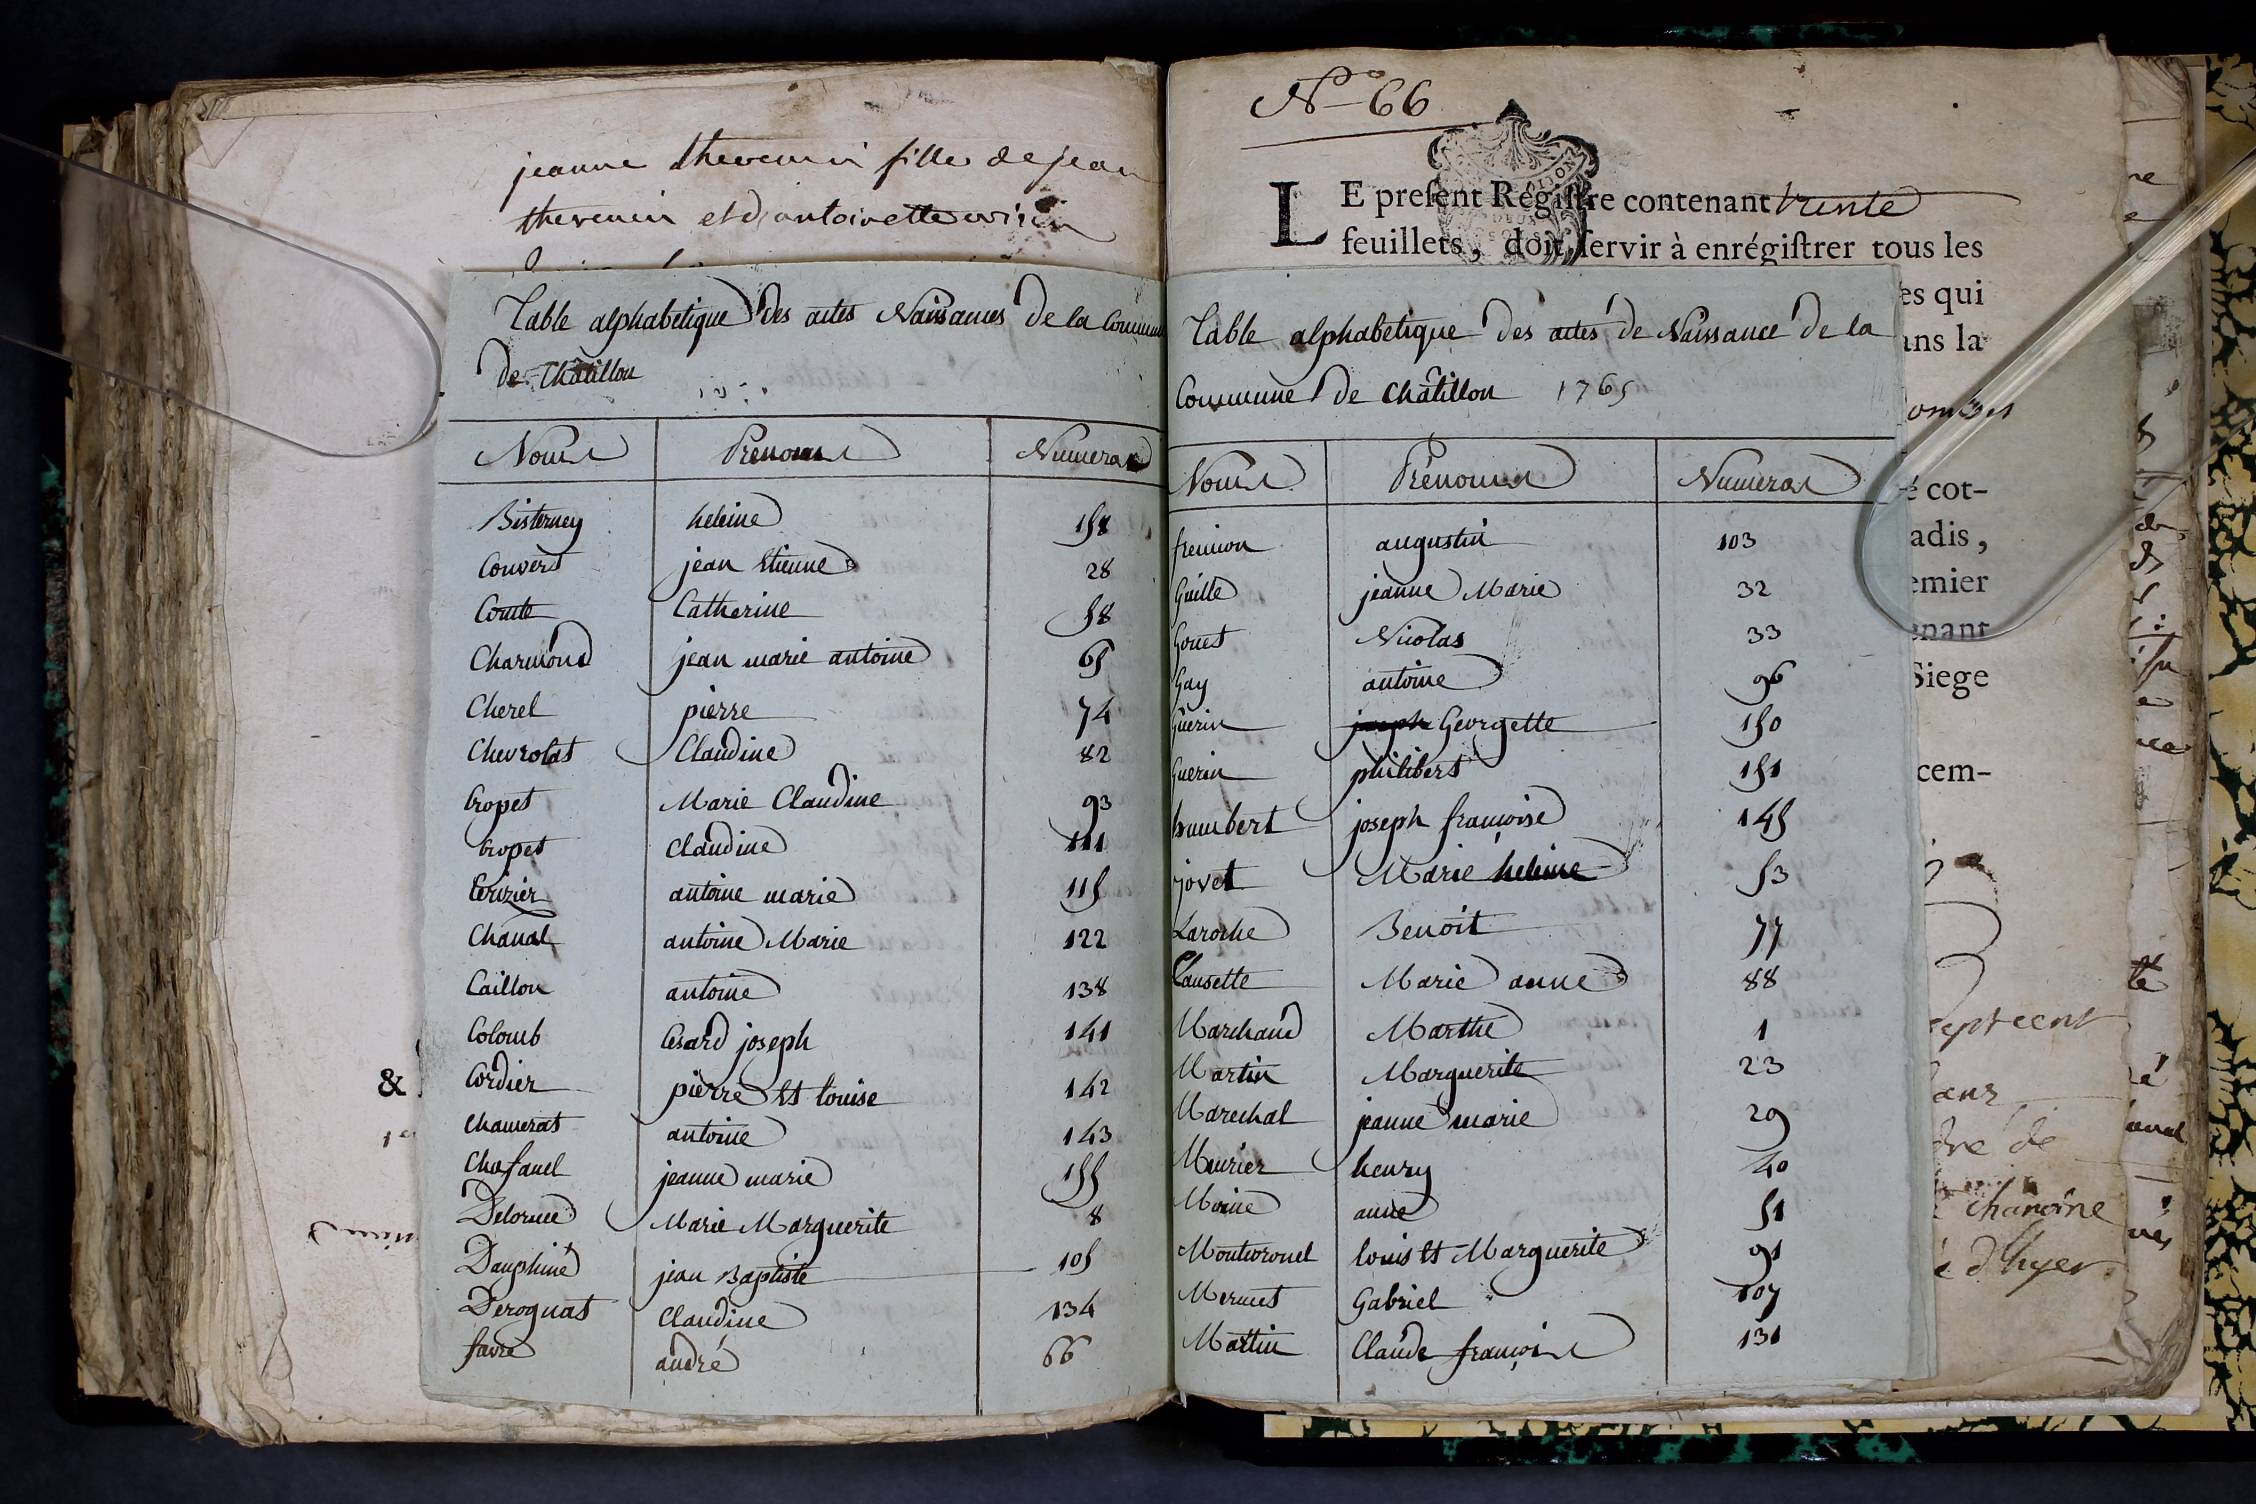 jeanne thevenin fille de jean
thevenin et d'antoinette
Table alphabetique des actes Naissances de la Commune
de Châtillon
Noms Prénoms Numeros
Bisterney heleine 158
Convert jean Etienne 28
Comte Catherine 58
Charmond jean marie antoine 65
Cherel pierre 74
Chevrolat Claudine 82
Cropet Marie Claudine 93
Cropet Claudine 111
Cerizier antoine marie 115
Chanal antoine Marie 122
Caillon antoine 138
Colomb Cesard joseph 141
Cordier pierre Et louise 142
Chamerat antoine 143
Chafanel jeanne marie 155
Delorme Marie Marguerite 8
Dauphiné jean Baptiste 105
Deroguat Claudine 134
favre andré 66
&
N° 66
LE present Régistre contenant trente
feuillets, doit servir à enrégistrer tous les
es qui
ans la
Table alphabetique des actes de Naissance de la
Commune de Châtillon 1765
Noms Prénoms Numeros
fremion augustin 103
Guille jeanne Marie 32
Gouet Nicolas 33
Gay antoine 96
Guerin joseph Georgette 150
Guerin philibert 151
humbert joseph françoise 145
jovet Marie heleine 53
Laroche Benoit 77
Lausette Marie anne 88
Marchand Marthe 1
Martin Marguerite 23
Marechal jeanne marie 29
Murier henry 40
Moine anne 51
Montvronel louis Et Marguerite 91
Mermet Gabriel 107
Martin Claude françois 131
é cot-
adis,
emier
gnant
Siege
cem-
septcent
dré de
chanoine
é d'hyer